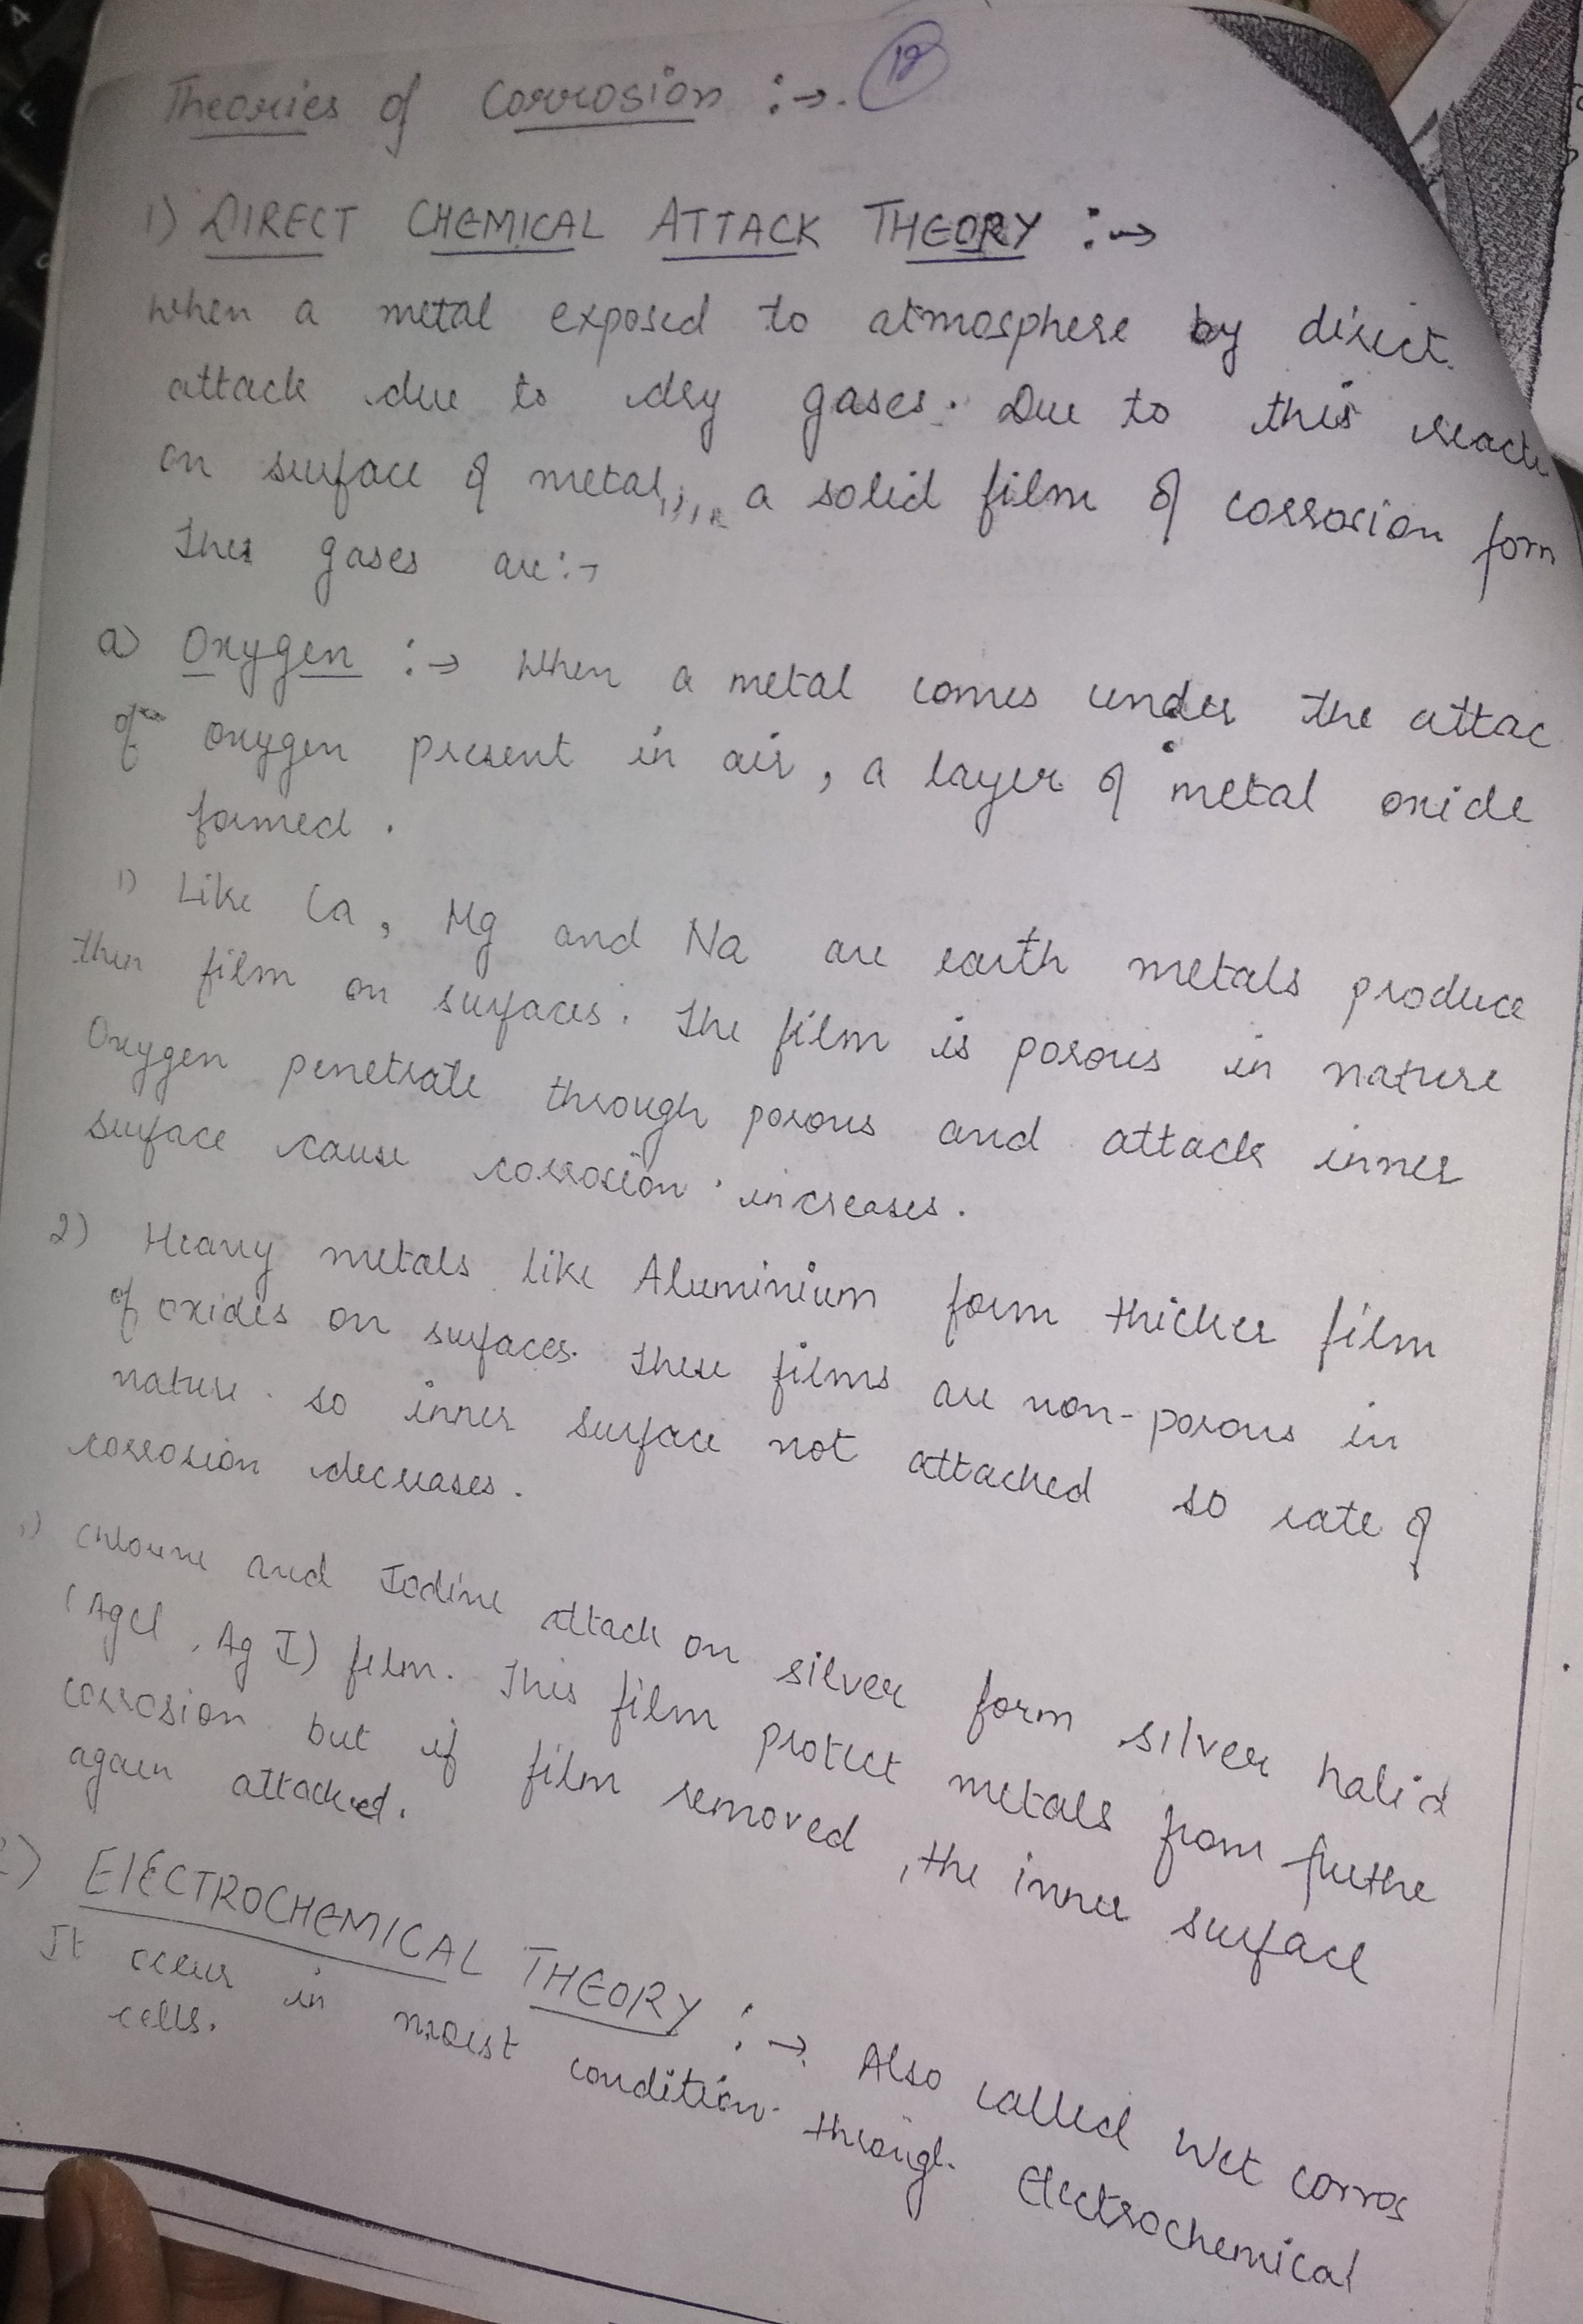 Theories of Corrosion :→. 12
1) DIRECT CHEMICAL ATTACK THEORY :→
When a metal exposed to atmosphere by direct
attack due to dry gases. Due to this reacti
on surface of metal, a solid film of corrosion form
These gases are :→
a) Oxygen :→ When a metal comes under the attac
of oxygen present in air, a layer of metal oxide
formed.
1) Like Ca, Mg and Na are earth metals produce
thin film on surfaces. The film is porous in nature
Oxygen penetrate through porous and attack inner
surface cause corrosion increases.
2) Heavy metals like Aluminium form thicker film
of oxides on surfaces. These films are non-porous in
nature. so inner surface not attacked so rate of
corrosion decreases.
Chlorine and Iodine attack on silver form silver halid
(AgCl, Ag I) film. This film protect metals from furthe
corrosion but if film removed, the inner surface
again attacked.
2) ElECTROCHEMICAL THEORY :→. Also called Wet corros
It occur in moist condition through Electrochemical
cells.